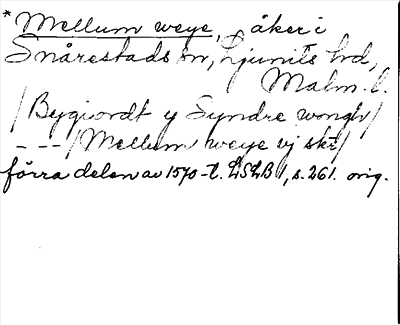 *Mellum weye, åker i
Snårestads sn, Ljunits hd,
Malm. l.
/Bygiordt y Syndre wongh/
- - -/Mellum weye vj skt/
förra delen av 1570-t. LSLB 1, s. 261. orig.